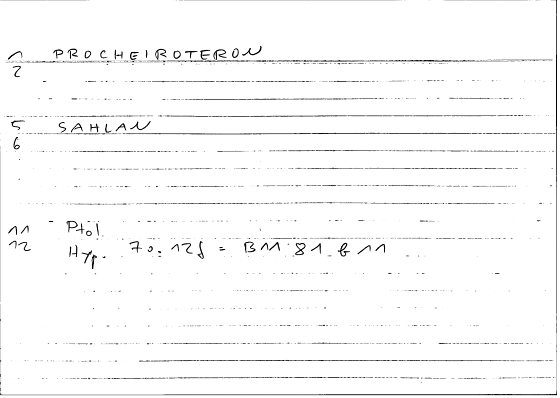 1 PROCHEIROTERON
2
5 SAHLAN
6
11 Ptol.
12 Hyp. 70:12f = BM 81 b 11